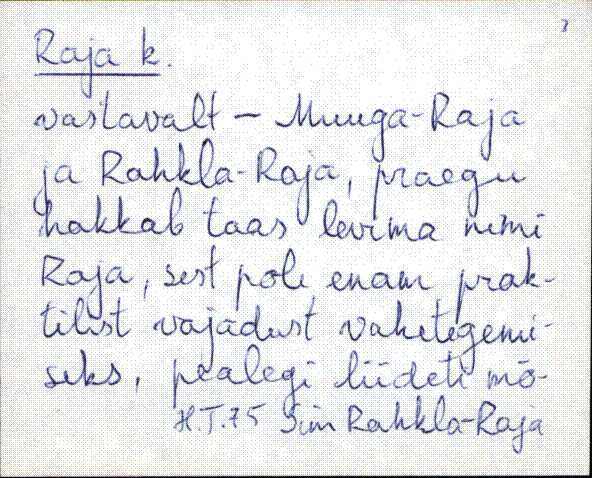 3
Raja k.
vastavalt – Muuga-Raja
ja Rahkla-Raja, praegu
hakkab taas levima nimi
Raja, sest pole enam prak-
tilist vajadust vahetegemi-
seks, pealegi liideti mõ-
H.T.75 Sim Rahkla-Raja